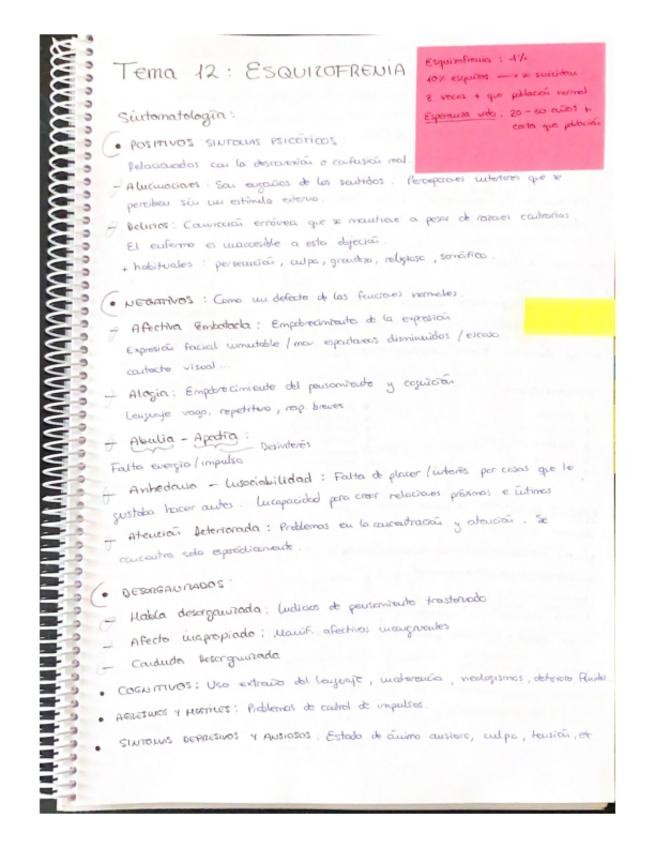 Tema 12: ESQUIZOFRENIA
Esquizofrenia: 1%
10% esquizos → se suicidan
8 veces + que población normal
Esperanza vida: 20-30 años +
corta que población
Sintomatología:
• POSITIVOS SINTOMAS PSICÓTICOS
Relacionados con la desconexión o confusión real.
- Alucinaciones: Son engaños de los sentidos. Percepciones interiores que se
perciben sin un estímulo externo.
- Delirios: Convicción errónea que se mantiene a pesar de razones contrarias.
El enfermo es inaccesible a esta objeción.
+ habituales: persecución, culpa, grandeza, religioso, somático.
• NEGATIVOS: Como un defecto de las funciones normales.
- Afectiva Embotada: Empobrecimiento de la expresión
Expresión facial inmutable / mov espontáneos disminuidos / escaso
contacto visual...
- Alogia: Empobrecimiento del pensamiento y cognición
Lenguaje vago, repetitivo, resp. breves
- Abulia - Apatía:
Desinterés
Falta energía / impulso
- Anhedonia - Insociabilidad: Falta de placer / interés por cosas que le
gustaba hacer antes. Incapacidad para crear relaciones próximas e íntimas
- Atención Deteriorada: Problemas en la concentración y atención. Se
concentra solo esporádicamente.
• DESORGANIZADOS:
- Habla desorganizada: Indicios de pensamiento trastornado
- Afecto inapropiado: Manif. afectivas incongruentes
- Conducta Desorganizada
• COGNITIVOS: Uso extraño del lenguaje, incoherencia, neologismos, deterioro fluido
• AGRESIVOS Y HOSTILES: Problemas de control de impulsos.
• SINTOMAS DEPRESIVOS Y ANSIOSOS. Estado de ánimo ansioso, culpa, tensión, etc